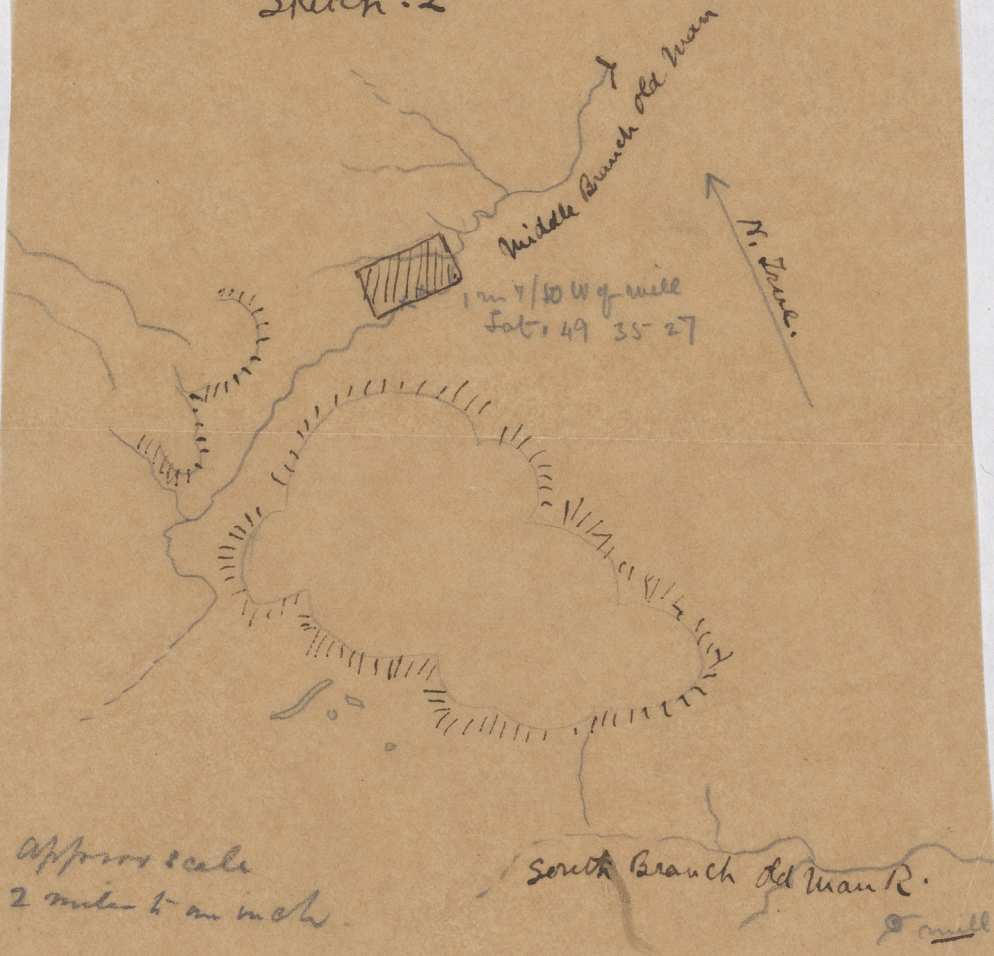 Sketch. 2
Middle Branch Old Man
N. True.
1 m 7/10 W of mill
Lat. 49 35 27
approx scale
2 miles to an inch.
South Branch Old Man R.
mill